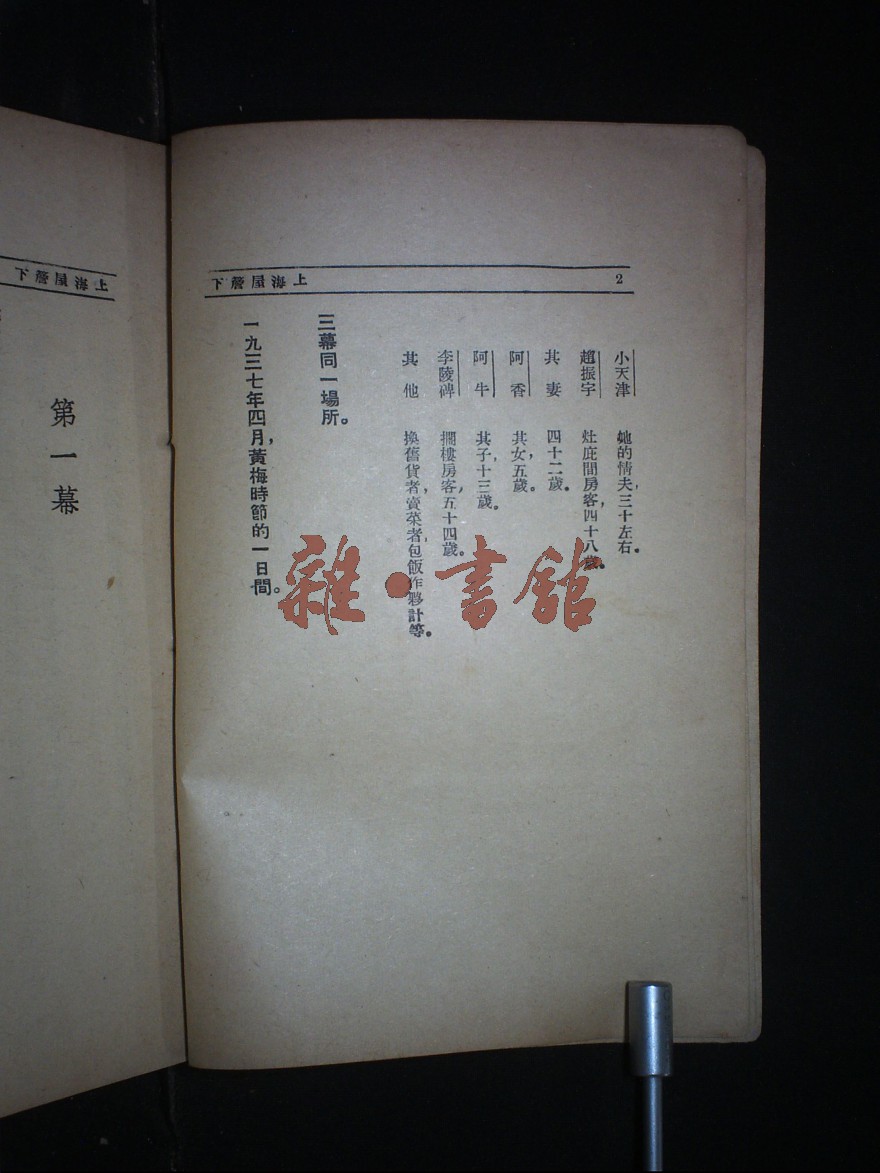 2
上海屋簷下
小天津 她的情夫，三十左右。
趙振宇 灶庇間房客，四十八歲。
其妻 四十二歲。
阿香 其女，五歲。
阿牛 其子，十三歲。
李陵碑 擱樓房客，五十四歲。
其他 換舊貨者，賣菜者，包飯作夥計等。
三幕同一場所。
一九三七年四月，黃梅時節的一日間。
雜·書館
上海屋簷下
第一幕